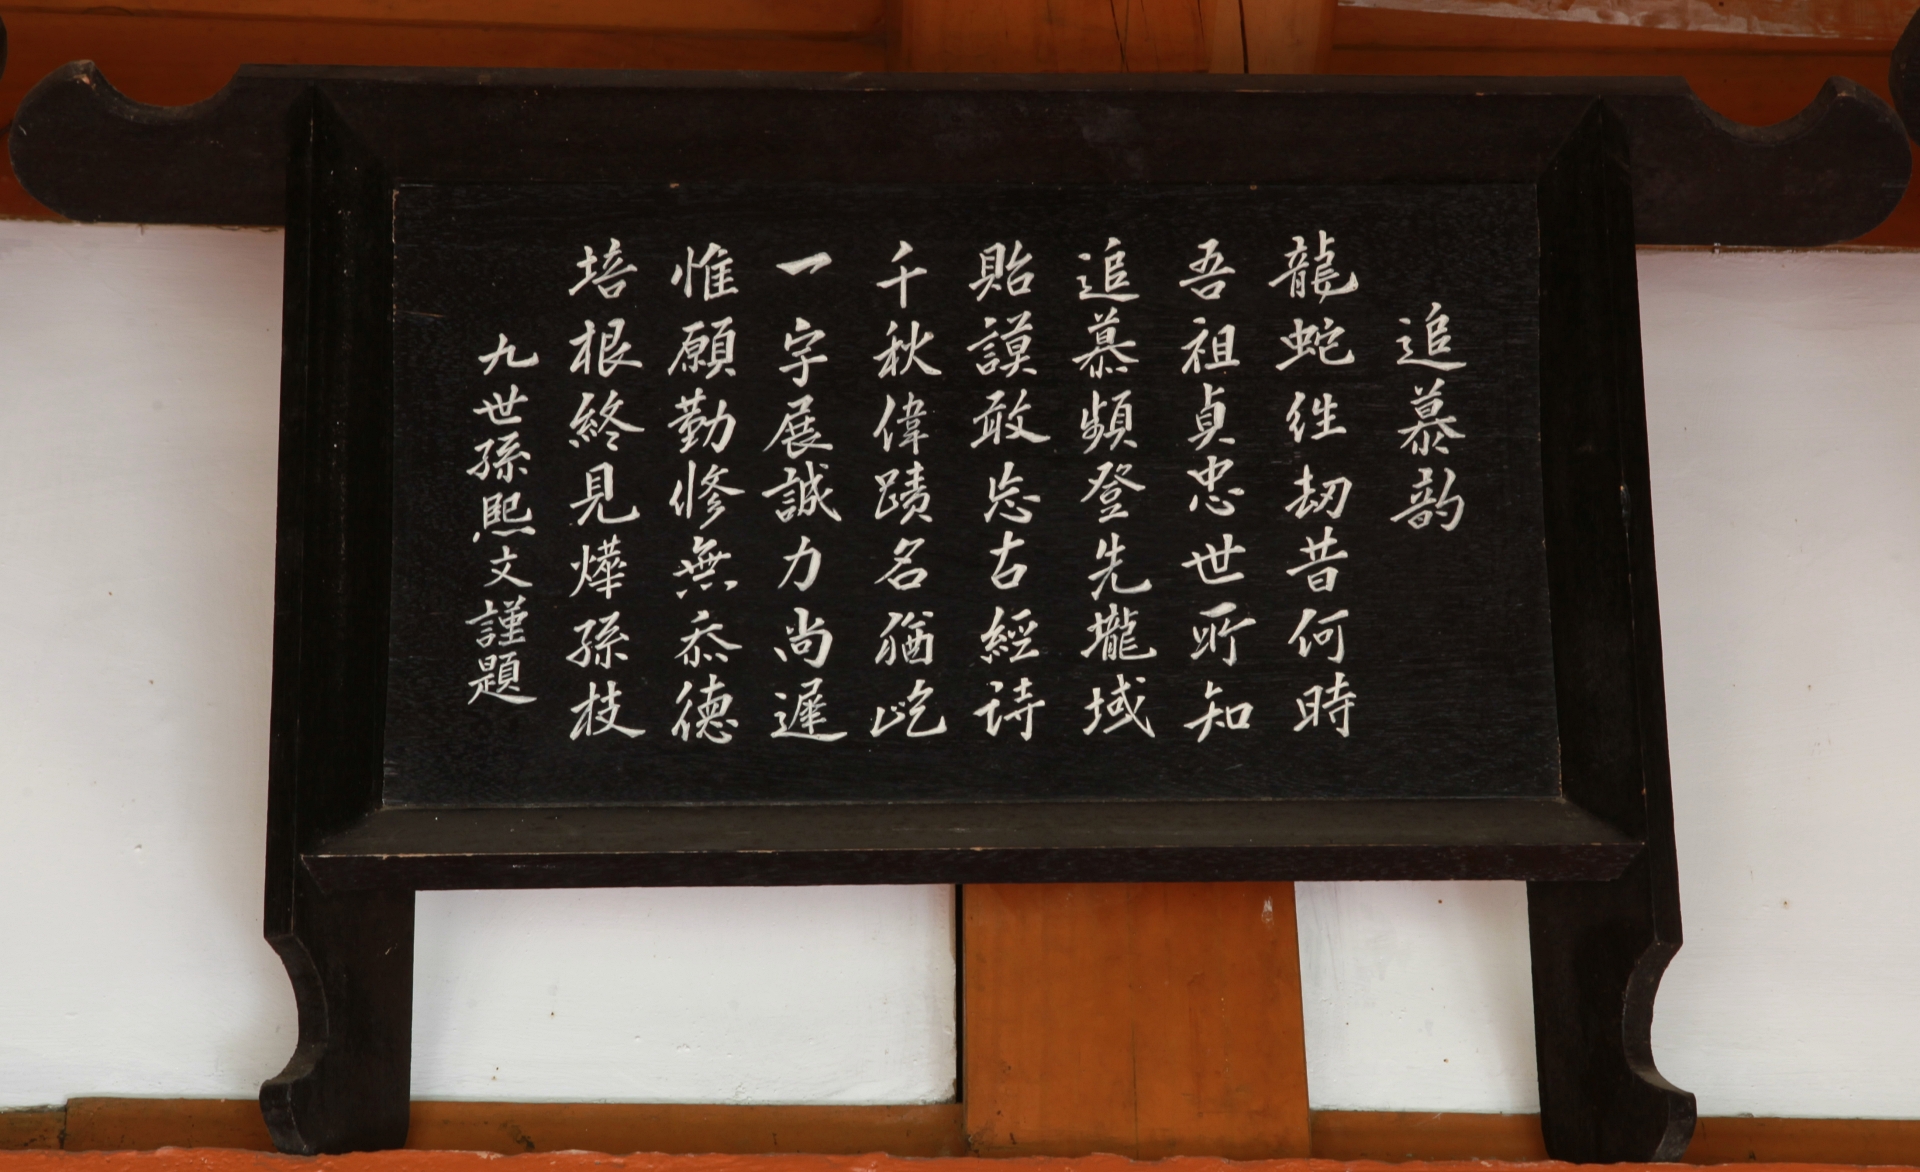 追慕韵
龍蛇往劫昔何時
吾祖貞忠世所知
追慕頻登先壠域
貽謨敢忘古經詩
千秋偉蹟名猶屹
一字展誠力尚遲
惟願勤修無忝德
培根終見燁孫枝
九世孫熙文謹題